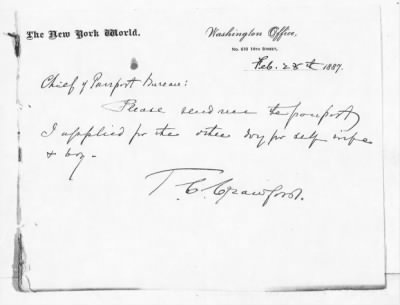 The New York World.
Washington Office,
No. 610 14th Street,
Feb. 28th 1887.
Chief of Passport Bureau:
Please send me the passport
I applied for the other day for self wife
& boy.
T. C. Crawford.